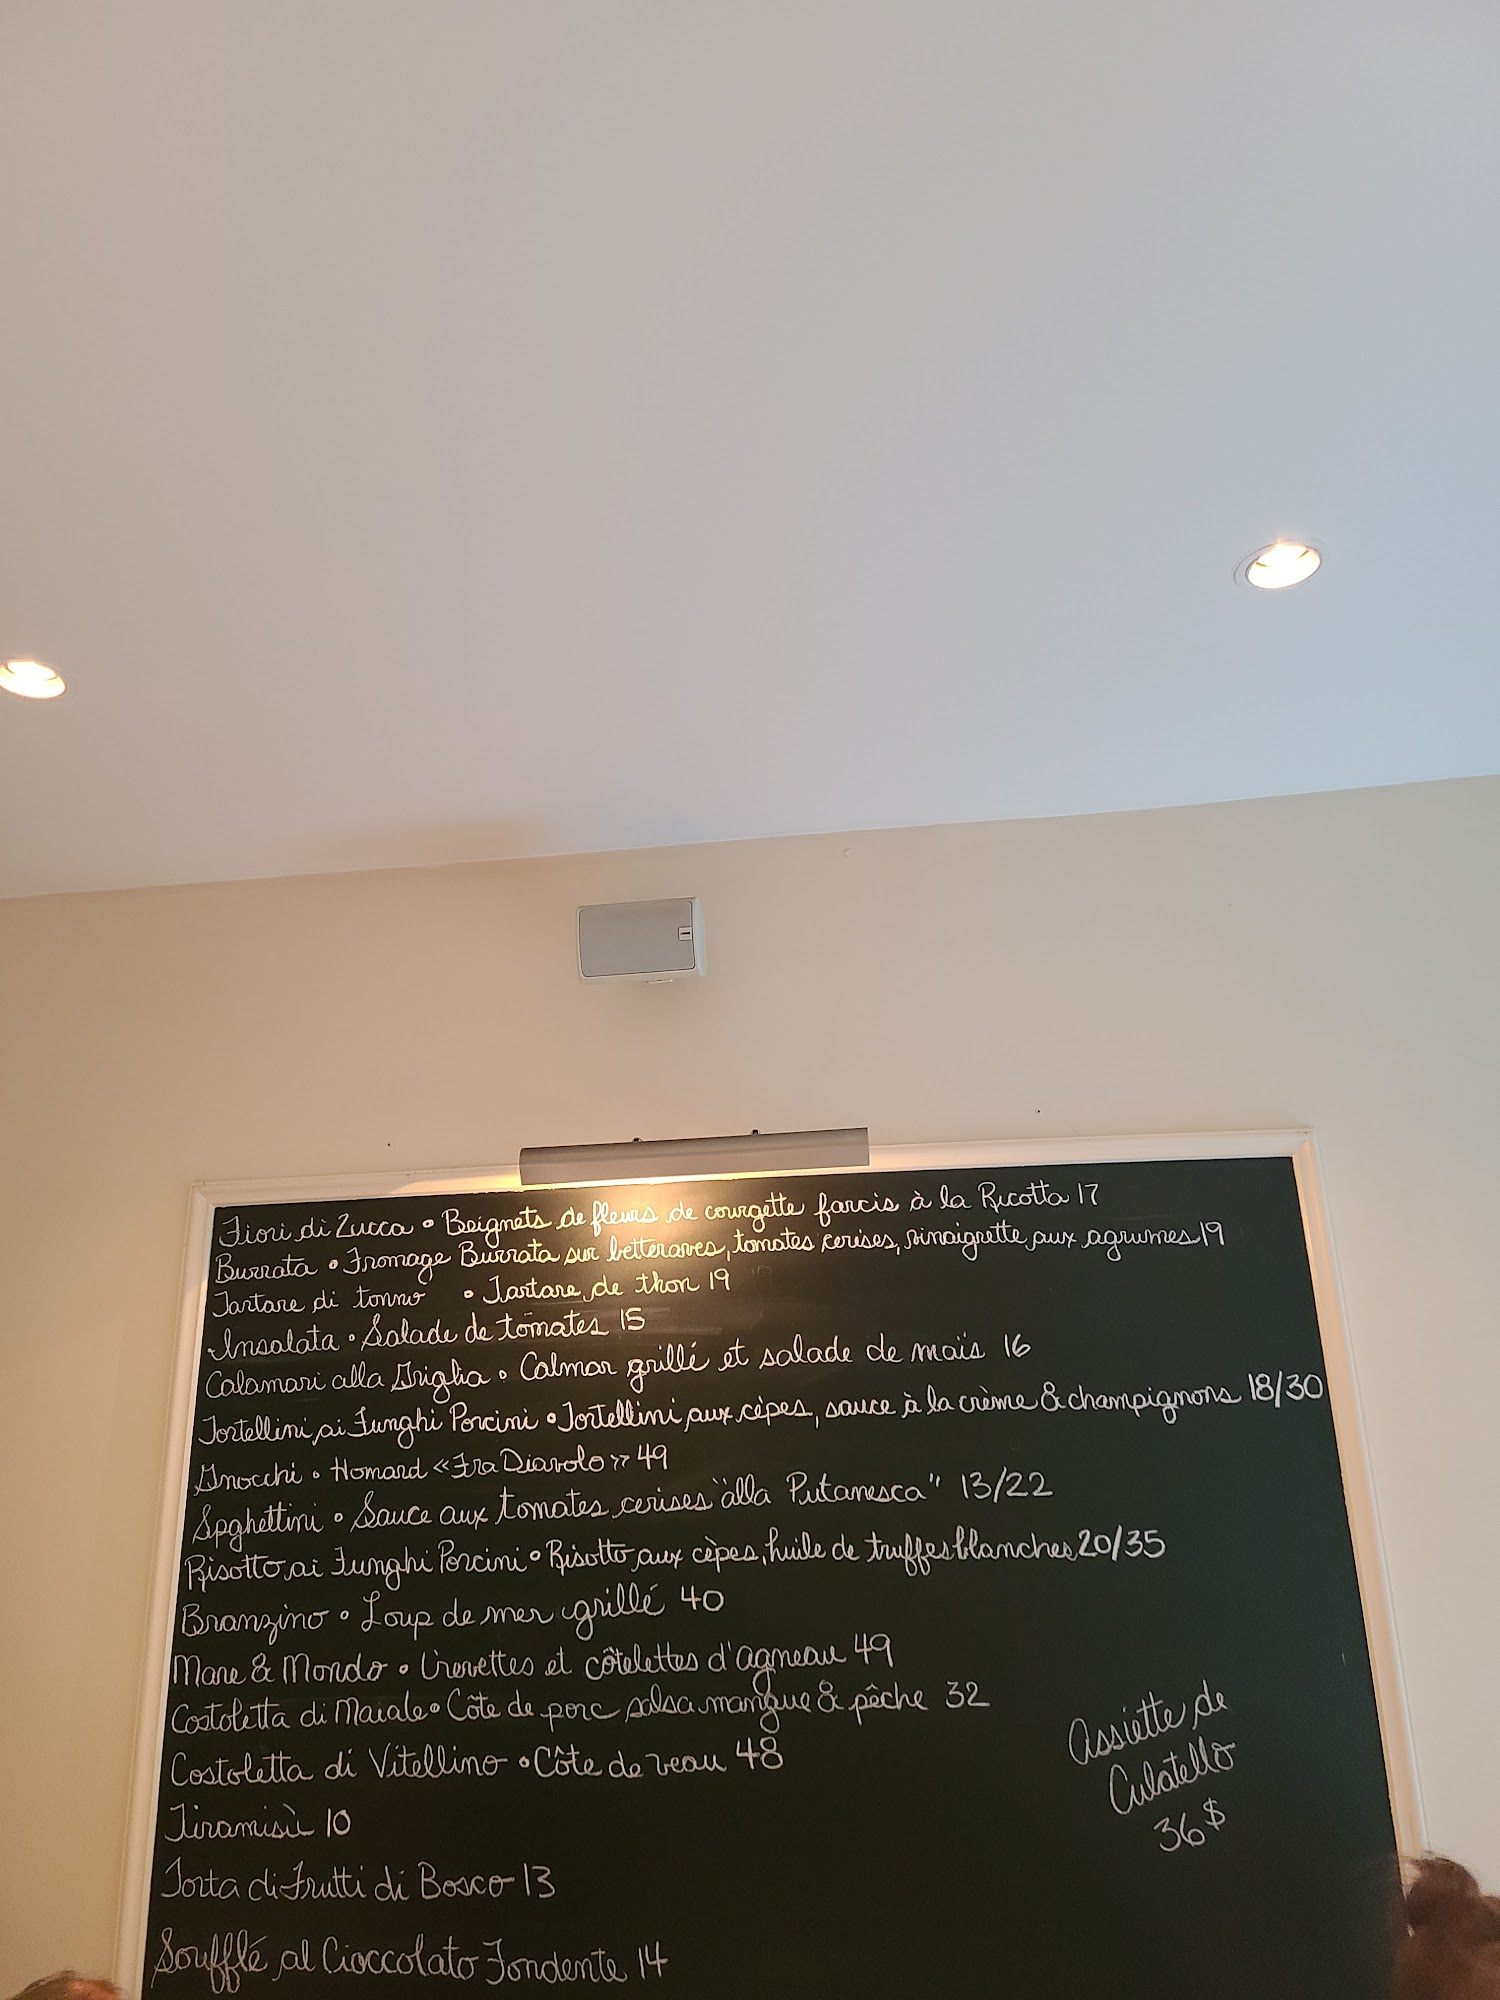 Fiori di Zucca • Beignets de fleurs de courgette farcis à la Ricotta 17
Burrata • Fromage Burrata sur betteraves, tomates cerises, vinaigrette aux agrumes 19
Tartare di tonno • Tartare de thon 19
Insalata • Salade de tomates 15
Calamari alla Griglia • Calmar grillé et salade de maïs 16
Tortellini ai Funghi Porcini • Tortellini aux cèpes, sauce à la crème & champignons 18/30
Gnocchi • Homard «Fra Diavolo» 49
Spghettini • Sauce aux tomates cerises "alla Putanesca" 13/22
Risotto ai Funghi Porcini • Risotto aux cèpes, huile de truffes blanches 20/35
Branzino • Loup de mer grillé 40
Mare & Mondo • Crevettes et côtelettes d'agneau 49
Costoletta di Maiale • Côte de porc salsa mangue & pêche 32
Costoletta di Vitellino • Côte de veau 48
Tiramisù 10
Torta di Frutti di Bosco 13
Soufflé al Cioccolato Fondente 14
Assiette de
Culatello
36$